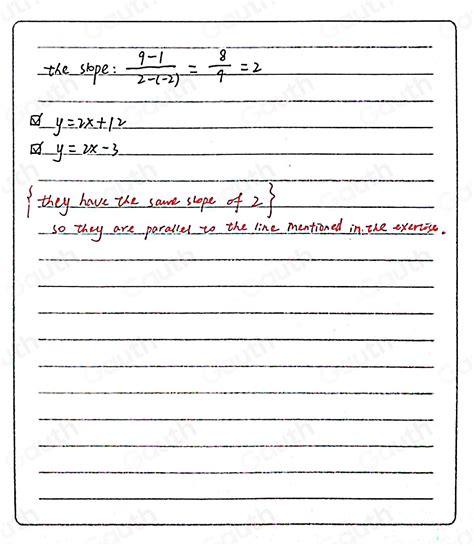 the slope: \frac{9-1}{2-(-2)} = \frac{8}{4} = 2
☑ y=2x+12
☑ y=2x-3
{they have the same slope of 2}
so they are parallel to the line mentioned in the exercise.
Gauth